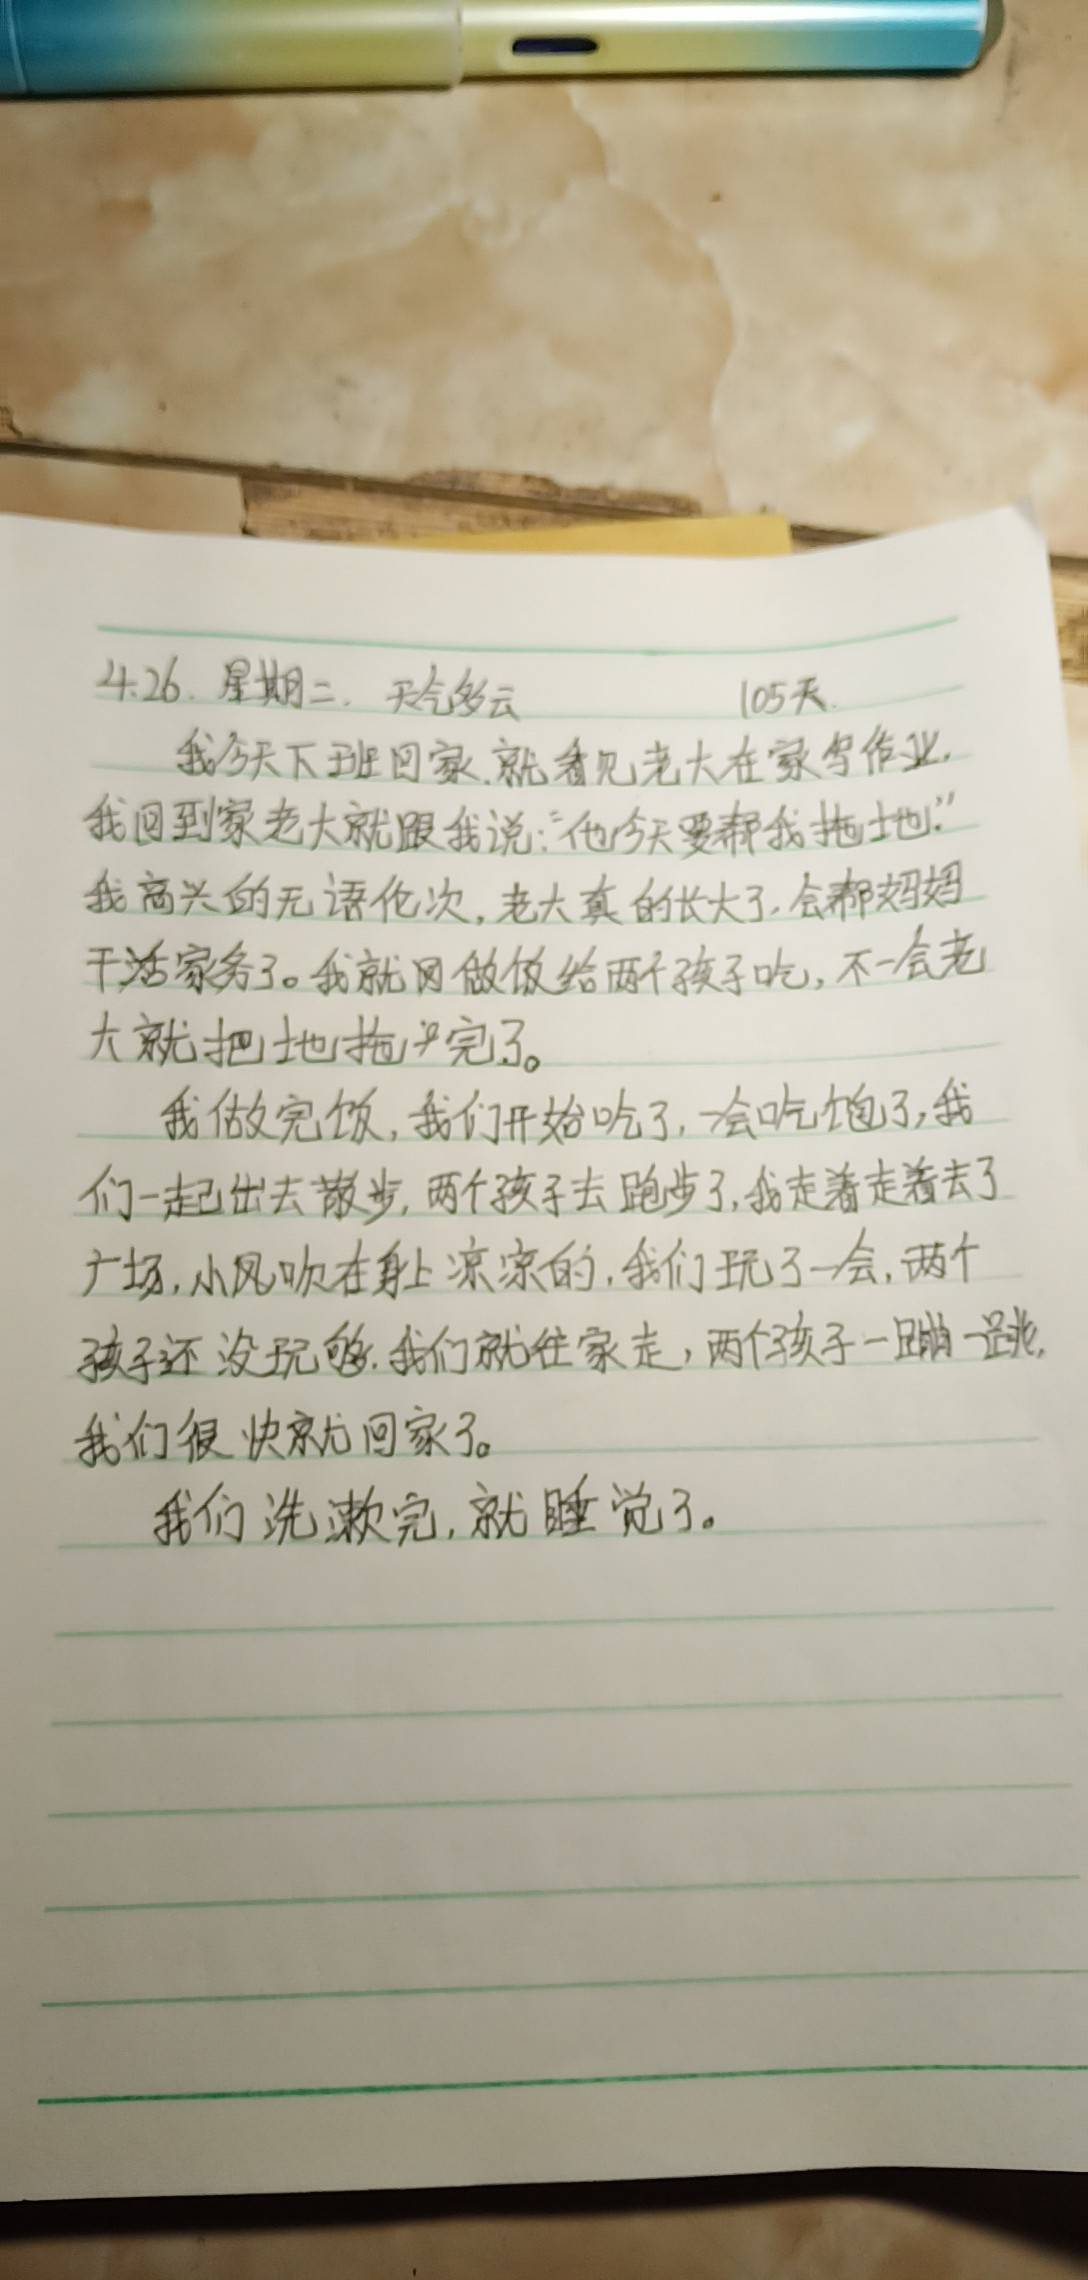 4.26. 星期二. 天气多云 105天.
我今天下班回家.就看见老大在家写作业.
我回到家老大就跟我说:“他今天要帮我拖地.”
我高兴的无语伦次,老大真的长大了.会帮妈妈
干活家务了。我就因做饭给两个孩子吃,不一会老
大就把地拖完了。
我做完饭,我们开始吃了,一会吃饱了,我
们一起出去散步,两个孩子去跑步了,我走着走着去了
广场,小风吹在身上凉凉的,我们玩了一会,两个
孩子还没玩够.我们就往家走,两个孩子一蹦一跳,
我们很快就回家了。
我们洗漱完,就睡觉了。